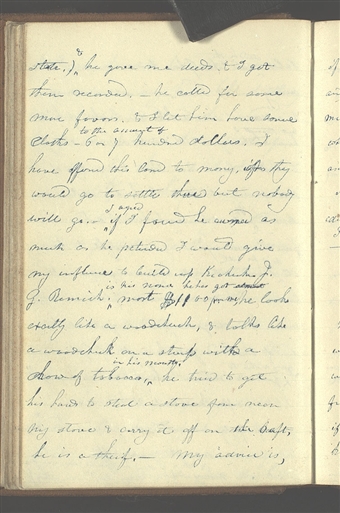 state.) & he gave me deeds. & I got
them recorded. — he called for some
more favors. & I let him have some
to the amount of
cloths — 6 or 7 hundred dollars. I
have offered this land to many, if they
would go to settle there but nobody
I agreed
will go. — if I found he owned as
much as he pretended I would give
my influence to build up
G. Remick,
is his name he has got
most he looks
exactly like a woodchuck, & talks like
a woodchuck on a stump with a
in his mouth,
chew of tobacco, he tried to get
his hands to steal a stove from near
my store & carry it off on the raft,
he is a thief. — My advice is,